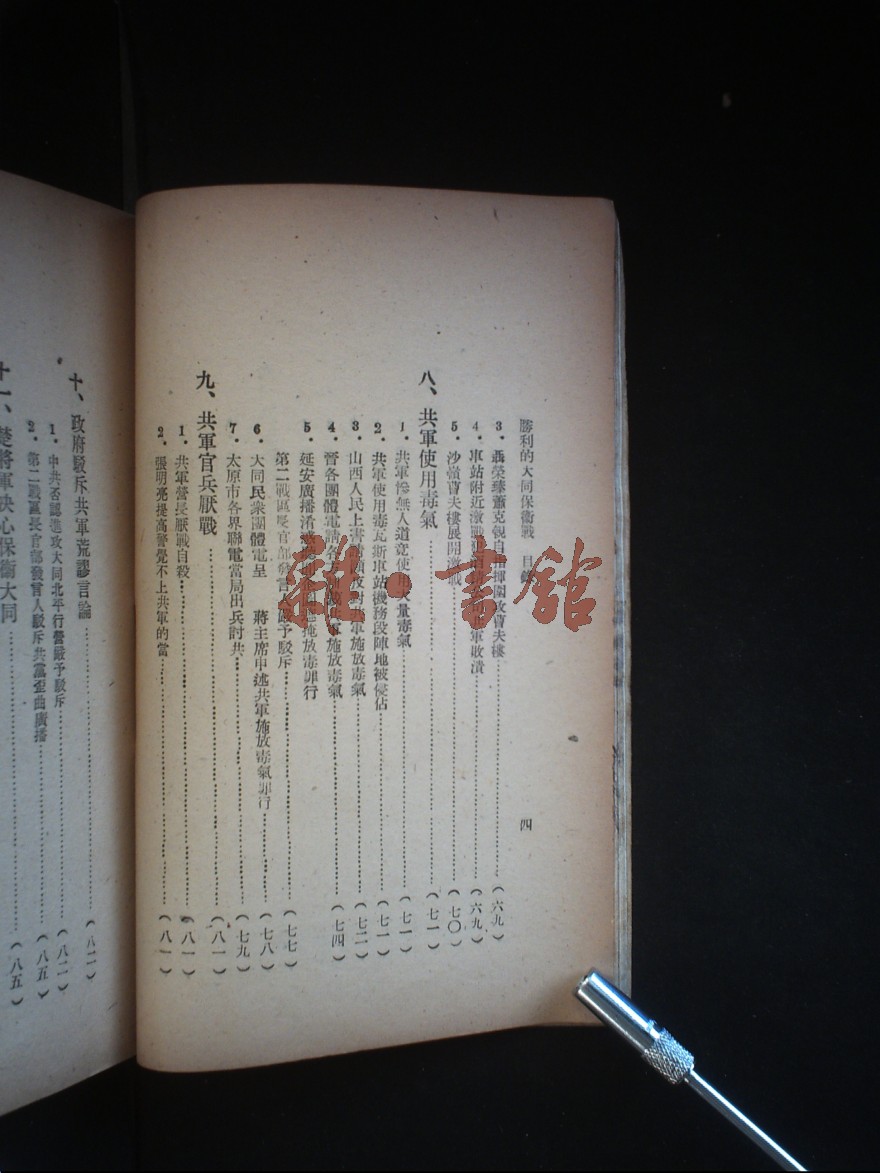 勝利的大同保衞戰 目
四
3．聶榮臻蕭克親自指揮圍攻曹夫樓……(六九)
4．車站附近激戰 軍敗潰……(六九)
5．沙嶺曹夫樓展開激戰……(七〇)
八、共軍使用毒氣……(七一)
1．共軍慘無人道竟使用大量毒氣……(七一)
2．共軍使用毒瓦斯車站機務段陣地被侵佔……(七一)
3．山西人民上書 軍施放毒氣……(七二)
4．晉各團體電請各 軍施放毒氣……(七四)
5．延安廣播淆惑 掩放毒罪行
第二戰區長官部發言人嚴予駁斥……(七七)
6．大同民衆團體電呈 蔣主席申述共軍施放毒氣罪行……(七八)
7．太原市各界聯電當局出兵討共……(七九)
九、共軍官兵厭戰……(八一)
1．共軍營長厭戰自殺……(八一)
2．張明亮提高警覺不上共軍的當……(八一)
十、政府駁斥共軍荒謬言論……(八二)
1．中共否認進攻大同北平行營嚴予駁斥……(八二)
2．第二戰區長官部發言人駁斥共黨歪曲廣播……(八五)
十一、楚將軍決心保衞大同……(八五)
雜·書館